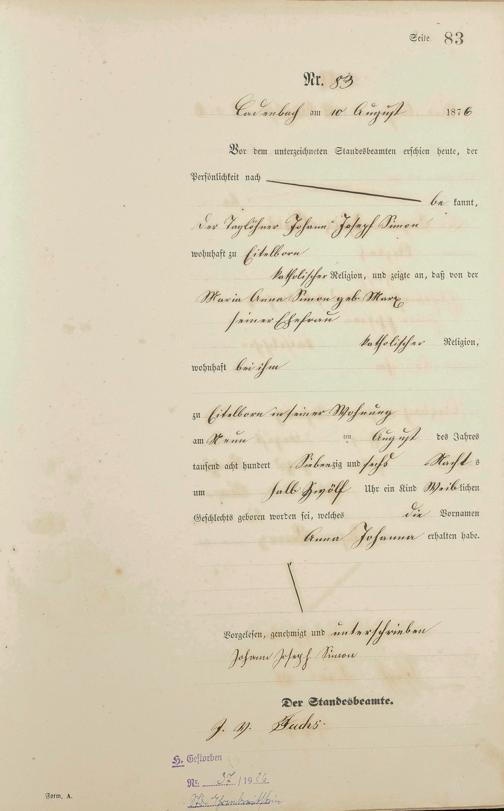 Seite 83
Nr. 83
Cadenbach am 10 August 1876
Vor dem unterzeichneten Standesbeamten erschien heute, der
Persönlichkeit nach
be kannt,
der Taglöhner Johann Joseph Simon
wohnhaft zu Eitelborn
katholischer Religion, und zeigte an, daß von der
Maria Anna Simon geb. Marx
seiner Ehefrau
katholischer Religion,
wohnhaft bei ihm
zu Eitelborn in seiner Wohnung
am Neun ten August des Jahres
tausend acht hundert Siebenzig und sechs Nacht s
um halb Zwölf Uhr ein Kind Weib lichen
Geschlechts geboren worden sei, welches die Vornamen
Anna Johanna erhalten habe.
Vorgelesen, genehmigt und unterschrieben
Johann Joseph Simon
Der Standesbeamte.
J. V. Fuchs.
H. Gestorben
Nr. 37/19
Form. A.